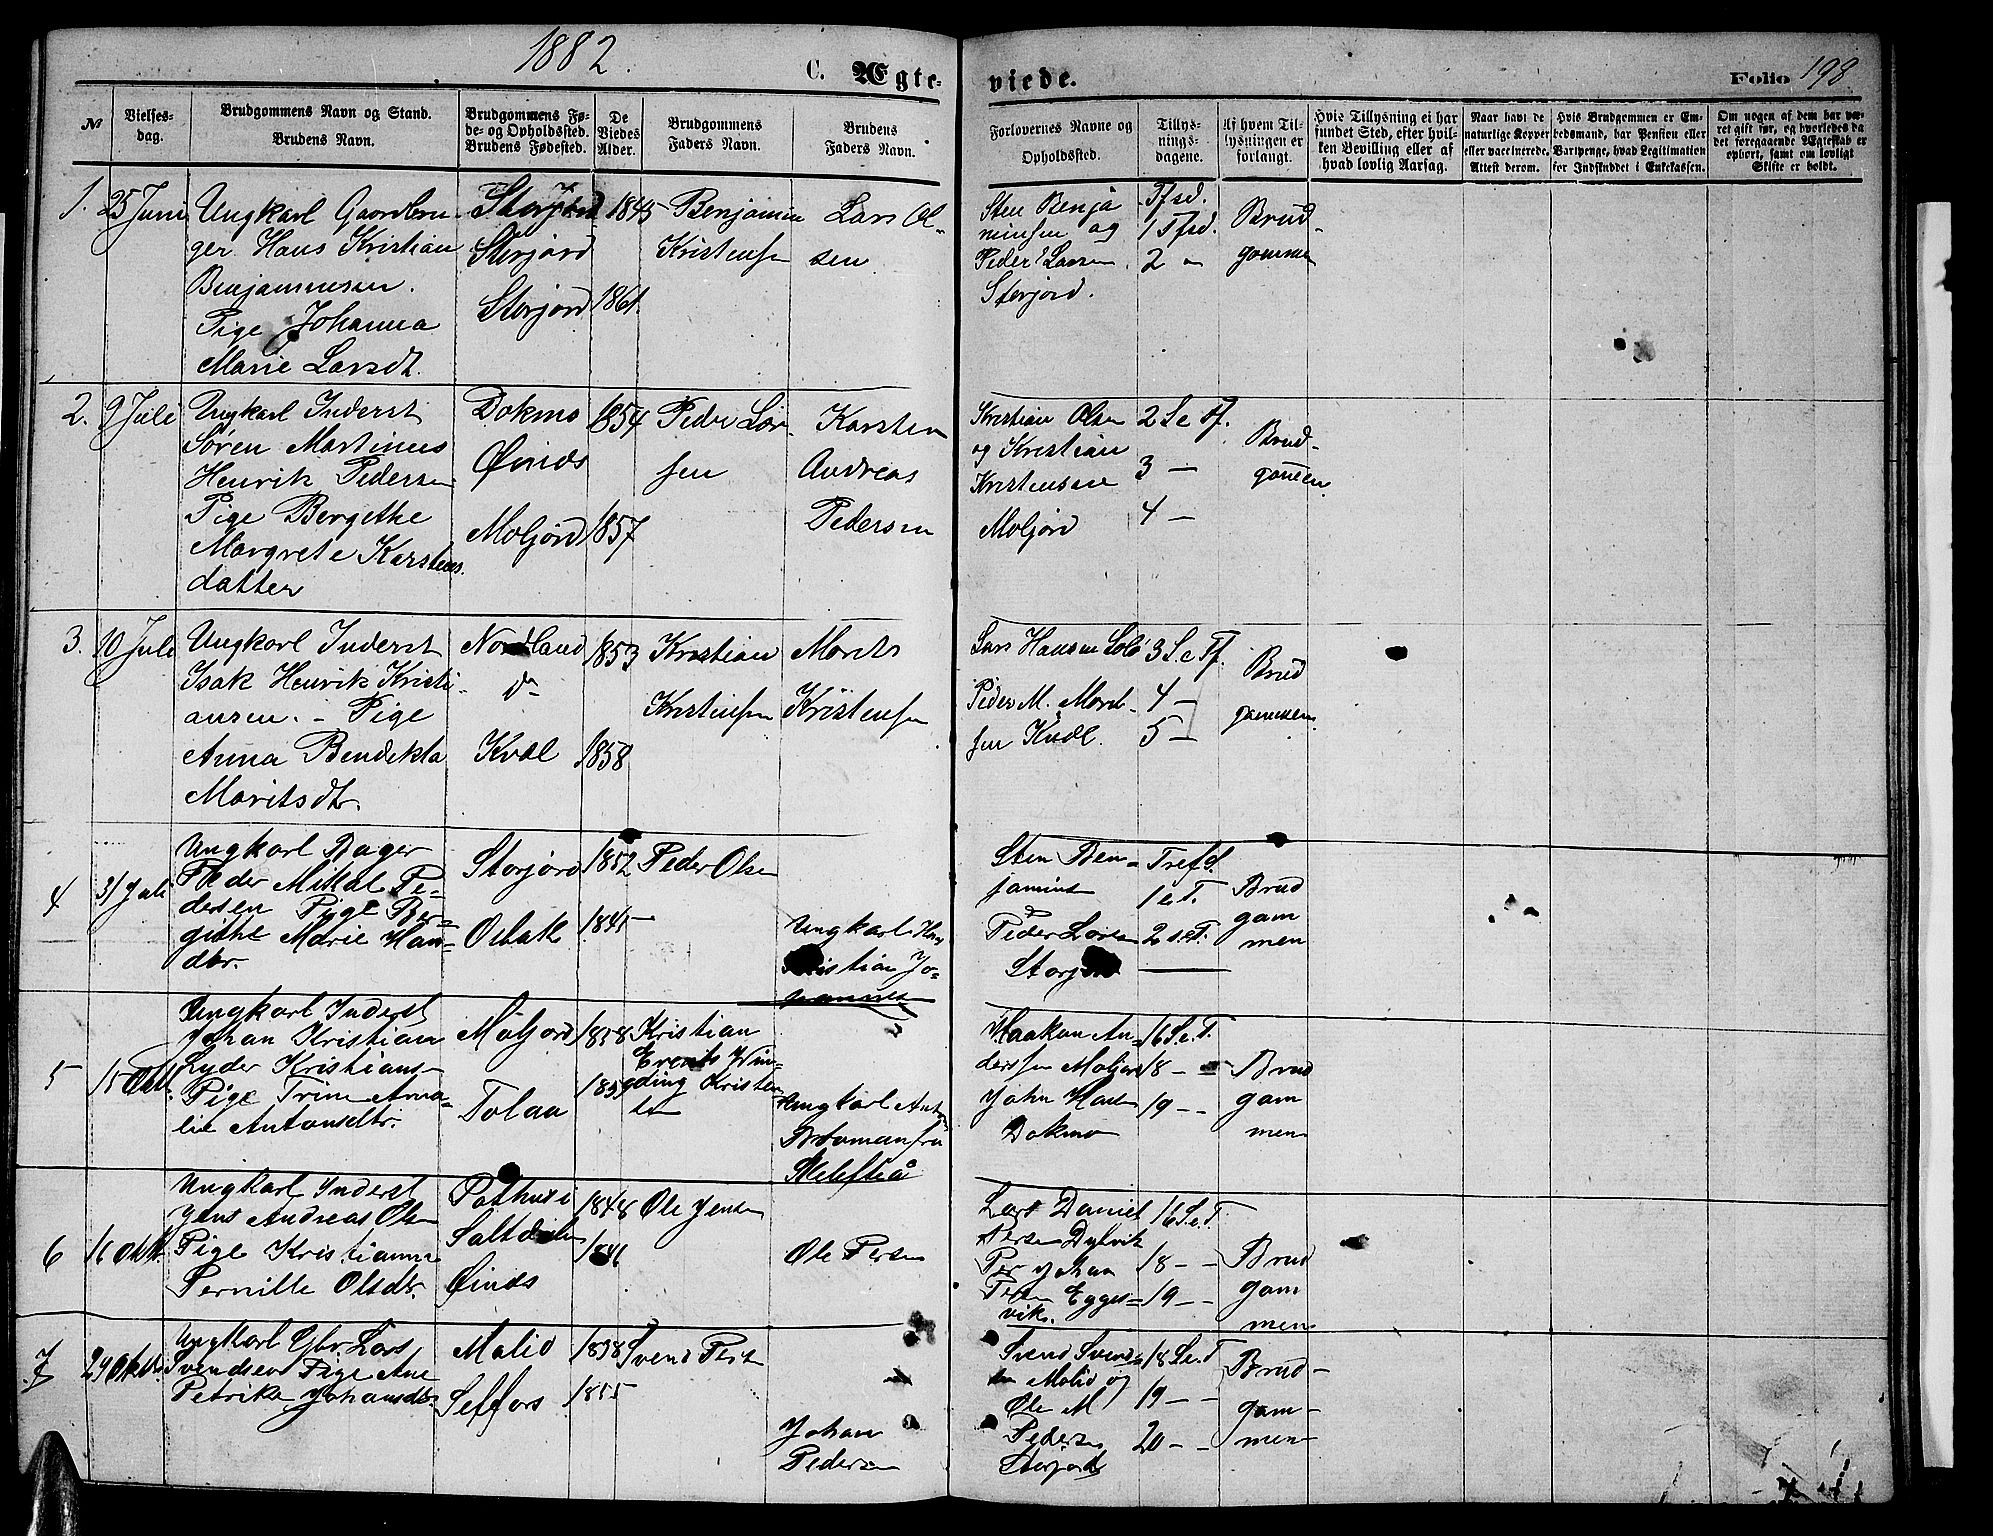 1882.
C. Ægte-
viede.
Folio 198
№
Vielses-
dag.
Brudgommens Navn og Stand.
Brudens Navn.
Brudgommens Fø-
de- og Opholdssted.
Brudens Fødested.
De
Viedes
Alder.
Brudgommens
Faders Navn.
Brudens
Faders Navn.
Forlovernes Navne og
Opholdssted.
Tillys-
nings-
dagene.
Af hvem Til-
lysningen er
forlangt.
Hvis Tillysning ei har
fundet Sted, efter hvil-
ken Bevilling eller af
hvad lovlig Aarsag.
Naar havt de
naturlige Kopper
eller vaccinerede.
Attest derom.
Hvis Brudgommen er Em-
bedsmand, har Pension eller
Vartpenge, hvad Legitimation
for Indskuddet i Enkekassen.
Om nogen af dem har væ-
ret gift før, og hvorledes da
det foregaaende Ægteskab er
ophørt, samt om lovligt
Skifte er holdt.
1. 25 Juni
Ungkarl Gaardbru
ger Hans Kristian
Benjaminsen.
Pige Johanna
Marie Larsdt.
Storjord
Storjord
Storjord
1845
1861.
Benjamin
Kristensen
Lars Ol-
sen
Sten Benja
minsen og
Peder Larsen
Storjord.
Tfsd.
1 Tfsd.
2 -
Brud-
gommen
2. 9 Juli
Ungkarl Inderst
Søren Martinus
Henrik Pedersen
Pige Bergethe
Margrete Karstens
datter
Dokmo
Øinds
Moljord
1854
1857
Peder Lar-
sen
Karsten
Andreas
Pedersen
Kristian Olsen
og Kristian
Kristensen
Moljord
2 S. e Tf.
3 -
4 -
Brud-
gommen.
3. 10 Juli
Ungkarl Inderst
Isak Henrik Kristi-
ansen. - Pige
Anna Bendikta
Moritsdt.
Nordland
Kval
1853
1858
Kristian
Kristensen
Morits
Kristensen
Lars Hansen
Peder M. Morit-
sen
3 S. e Tf.
4 -
5 -
Brud
gommen
4 31 Juli
Ungkarl
Peder Mikal Pe-
dersen Pige Ber-
githe Marie Han-
dtr.
Storjord
Osbak
1852
1845
Peder Olsen
Ungkarl Hans
Kristian Jo-
hannesen
Sten Ben-
jamins
Peder Lars
Storjord
Trefd.
1 e T.
2 s e T.
Brud
gom
men
5 15 Okt.
Ungkarl Inderst
Johan Kristian
Lyder Kristians-
Pige Trine Ama-
lie Antonsdtr.
Moljord
Tolaa
1858
1859
Kristian
Events Win-
ding Kristen
sen
Ungkarl Anton
Broman fra
Skelefteå
Haakon An-
dersen Moljord
John Hans
Dokmo
16 S. e. T.
18 - -
19 - -
Brud
gom
men
6 16 Okt.
Ungkarl Inderst
Jens Andreas Olsen
Pige Kristianna
Pernille Olsdtr.
Pothus i
Saltdalen
Øinds
1848
1846
Ole Jensen
Ole Persen
Lars Daniel
Persen Dykvik
Per Johan
Persen Egges-
vik.
16 S. e. T.
18 - -
19 - -
Brud
gom
men
7 29 Oktbr.
Ungkarl Gbr. Lars
Svendsen Pige Ane
Petrike Johansdtr.
Molid
Selfors
1858
1855
Svend Pers
Johan
Pedersen
Svend Svend-
sen Molid og
Ole M
Pedersen
Storjord
18 S. e T
19 - -
20 - -
Brud-
gom-
men